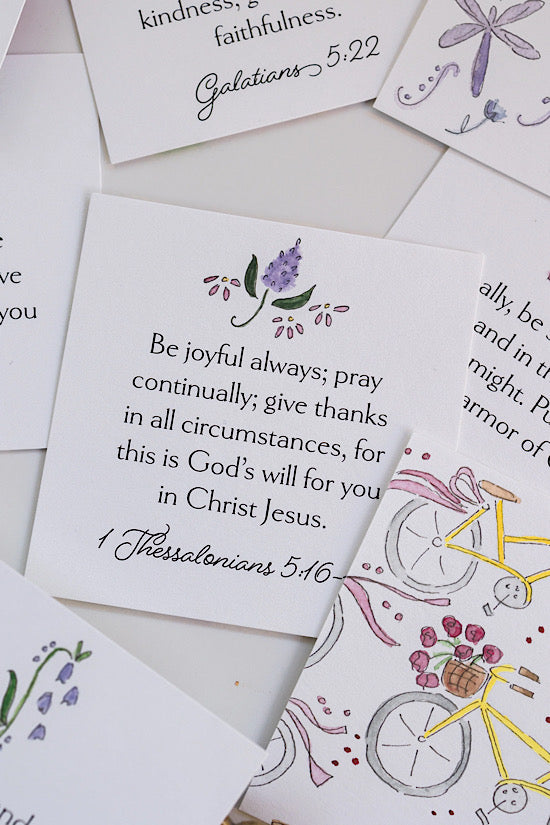 kindness, g
faithfulness.
Galatians 5:22
ve
you
ally, be
and in th
might. Pu
armor of
Be joyful always; pray
continually; give thanks
in all circumstances, for
this is God's will for you
in Christ Jesus.
1 Thessalonians 5:16–
nd